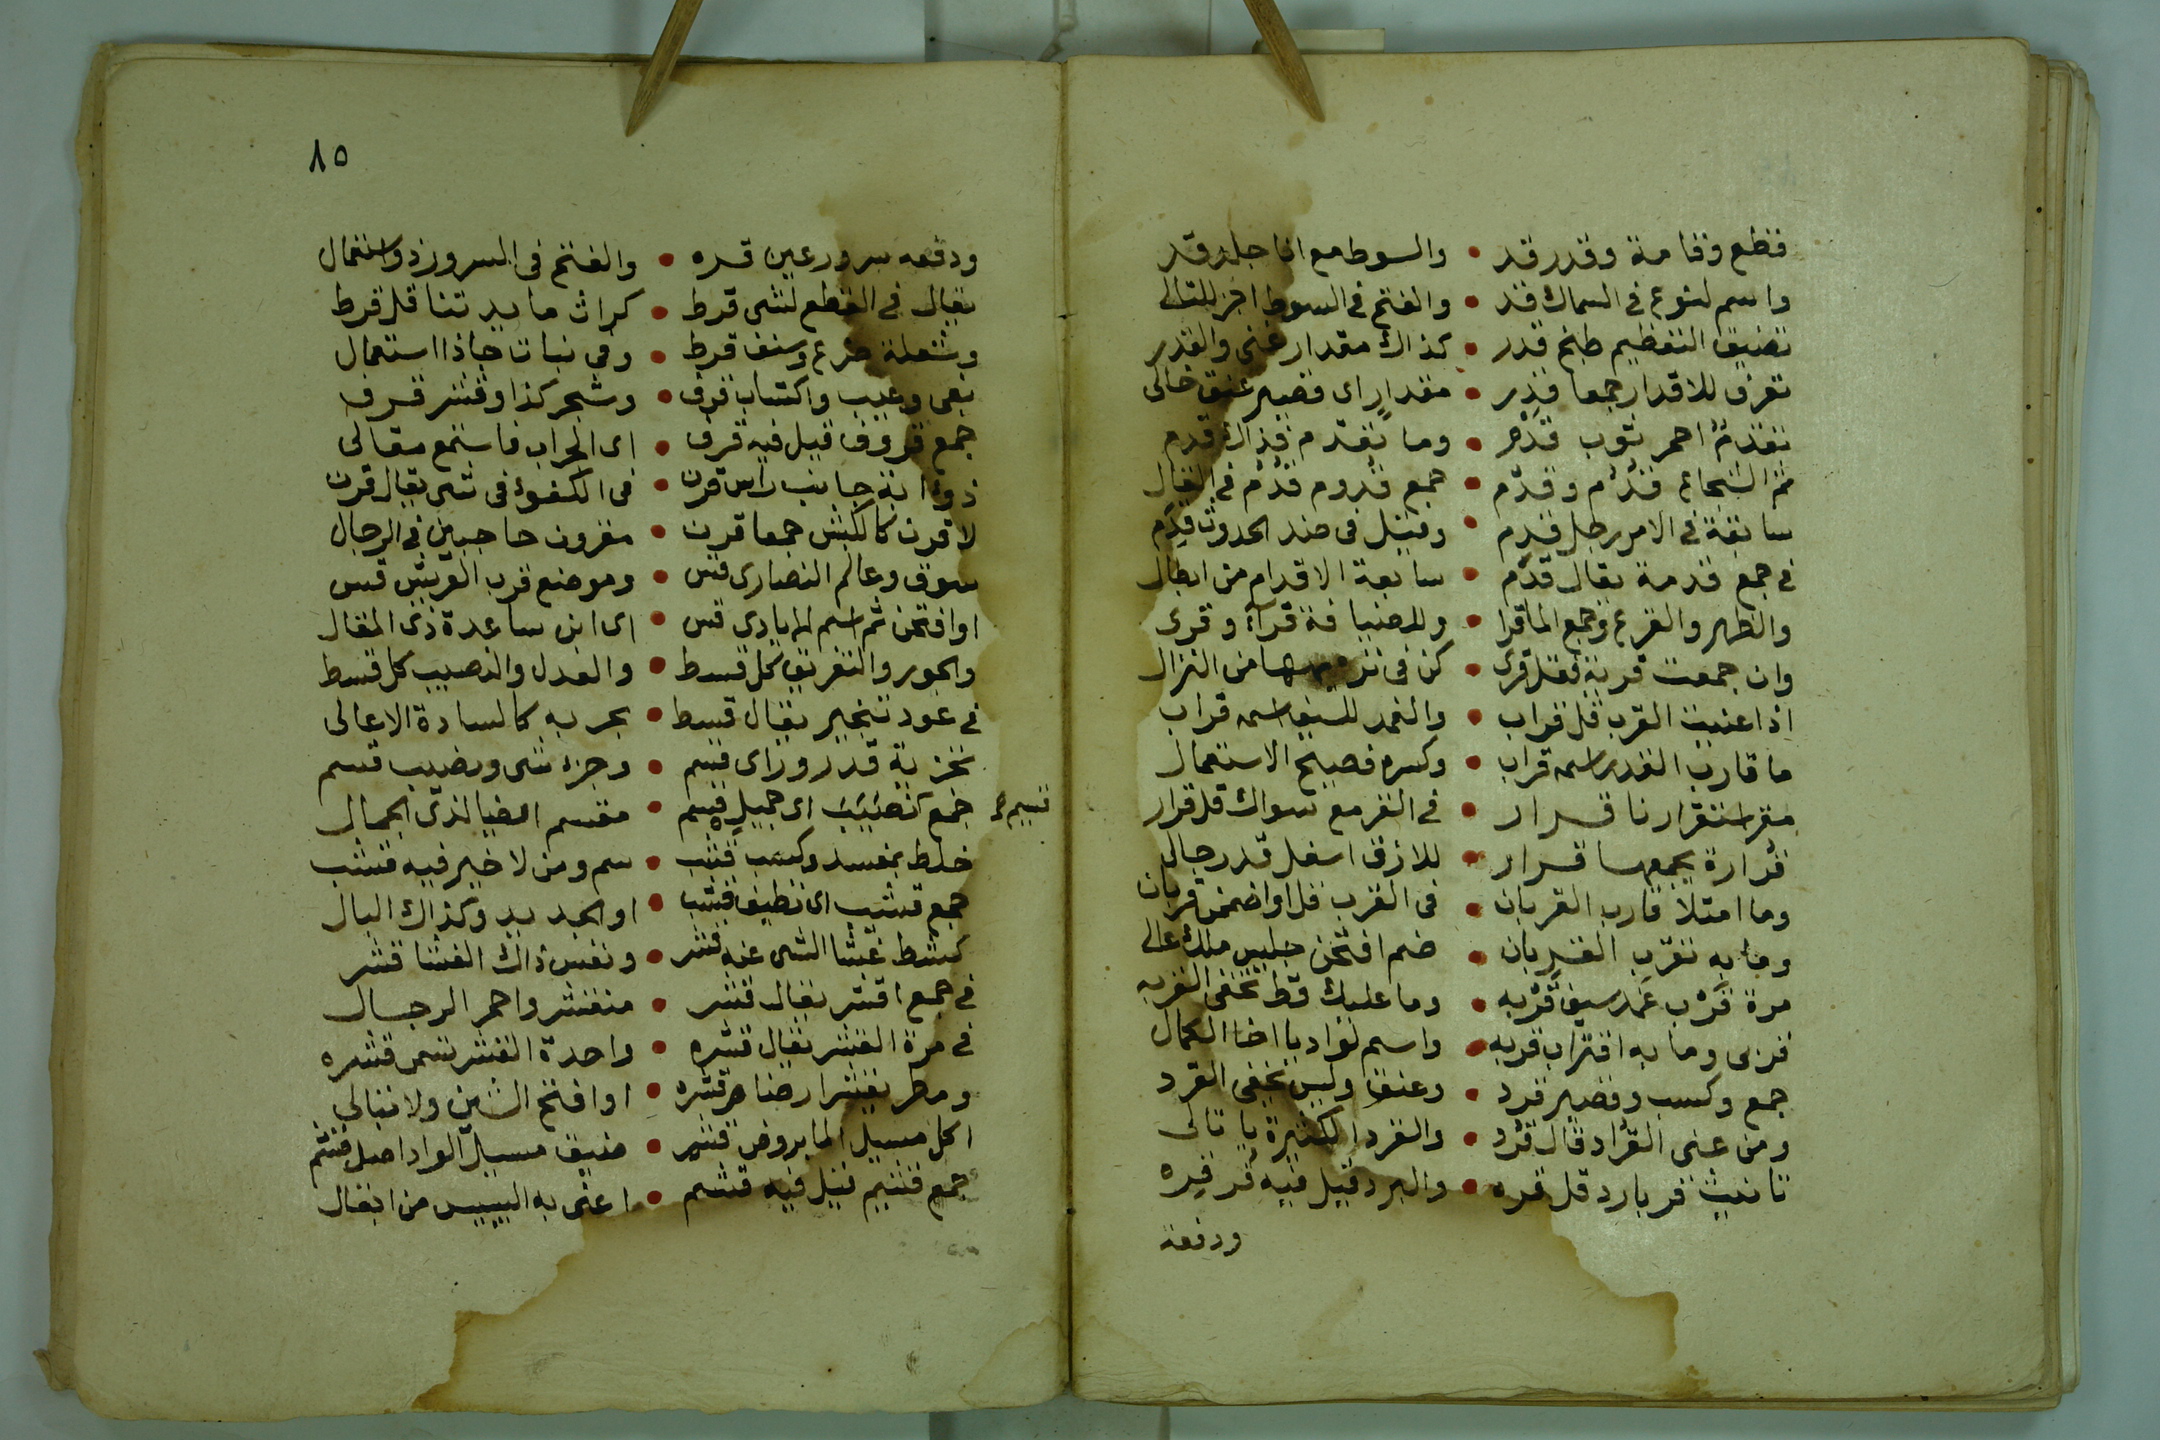 قطع وقامة وقدر قد • والسوط مع انا جلد قد
واسم لنوع في السماك قد • والفتح في السوط اجز للتالي
تضييق التعظيم طبخ قدر • كذاك مقدار غنى والقدر
تعزى للاقدار جمعا قدر • مقدار اى قصير عنق خالى
تقدم احمر ثوب قدم • وما تقدم فذاك قدم
ثم الشجاع قدم وقدم • جمع قدوم قدم في القال
سابقة في الامر رجل قدم • وقيل فى ضد الحدوث قدم
في جمع قدمة يقال قدم • سابعة الاقدام من ابطال
والظهر والقرع وجمع الماقرا • وللضيافة قراء وقرى
وان جمعت قرية فقل قرى • كن فى من النزال
اذا عنيت القرب قل قراب • والغمد للسيف اسمه قراب
ما قارب القدر اسمه قراب • وكسره فصيح الاستعمال
مقر استقرارنا قرار • في القر مع سواك قل قرار
قرارة بجمعها قرار • للازق اسفل قدر جال
وما امتلا قارب القربان • فى القرب قل او اضممن قربان
وما به تقرب القربان • ضم افتحن جليس ملك عالى
مرة قرب غمد سيف قربه • وما عليك قط تخفى القربه
قربى وما به اقتراب قربه • واسم لواد يا اخا الكمال
جمع وكسب وقصير قرد • وعنق وليس يخفى القرد
ومن عنى القراد قال قرد • والقرد الكثيرة يا تالى
تانيث قر بارد قل قره • والبرد قيل فيه قر قره
ودفعة
٨٥
ودفعه سرور عين قره • والفتح في السرور ذو استعمال
يقال في القطع لشى قرط • كراث ما يد تنا قل قرط
وشعلة ضرع وشنف قرط • وفى نبات جاذا استعمال
بغى وعيب واكتساب قرف • وشجر كذا وقشر قرف
جمع قروف قيل فيه قرف • اى الجراب فاستمع مقالى
ذوابة جانب راس قرن • فى الكفوء فى شى يقال قرن
لاقرن كالكبش جمعا قرن • مقرون حاجبين في الرجال
سوق وعالم النصارى قس • وموضع قرب العريش قس
او افتحن ثم اسم لايادى قس • اى ابن ساعدة ذى المقال
والجور والتفريق كل قسط • والعدل والنصيب كل قسط
في عود تبخير يقال قسط • بحربه كالسادة الاعالى
تجزية قدر وراى قسم • وجزء شى ونصيب قسم
جمع كنصيب اى جميل قسم • مقسم الضيا لذى الجمال
قسيم
خلط بمفسد وكسب قشب • سم ومن لا خير فيه قشب
جمع قشيب اى نظيف قشب • او الجديد وكذاك البال
كشط غشا الشى عنه قشر • ونفس ذاك الغشا قشر
في جمع اقشر يقال قشر • منقشر واحمر الرجال
في مرة القشر يقال قشره • واحدة القشر تسمى قشره
ومطر يقشر ارضا هو قشره • او افتح الشين ولا تبالى
اكل مسيل الما بروض قشم • ضيق مسيل الواد اصل قشم
جمع قشيم قيل فيه قشم • اعنى به اليبيس من ابقال